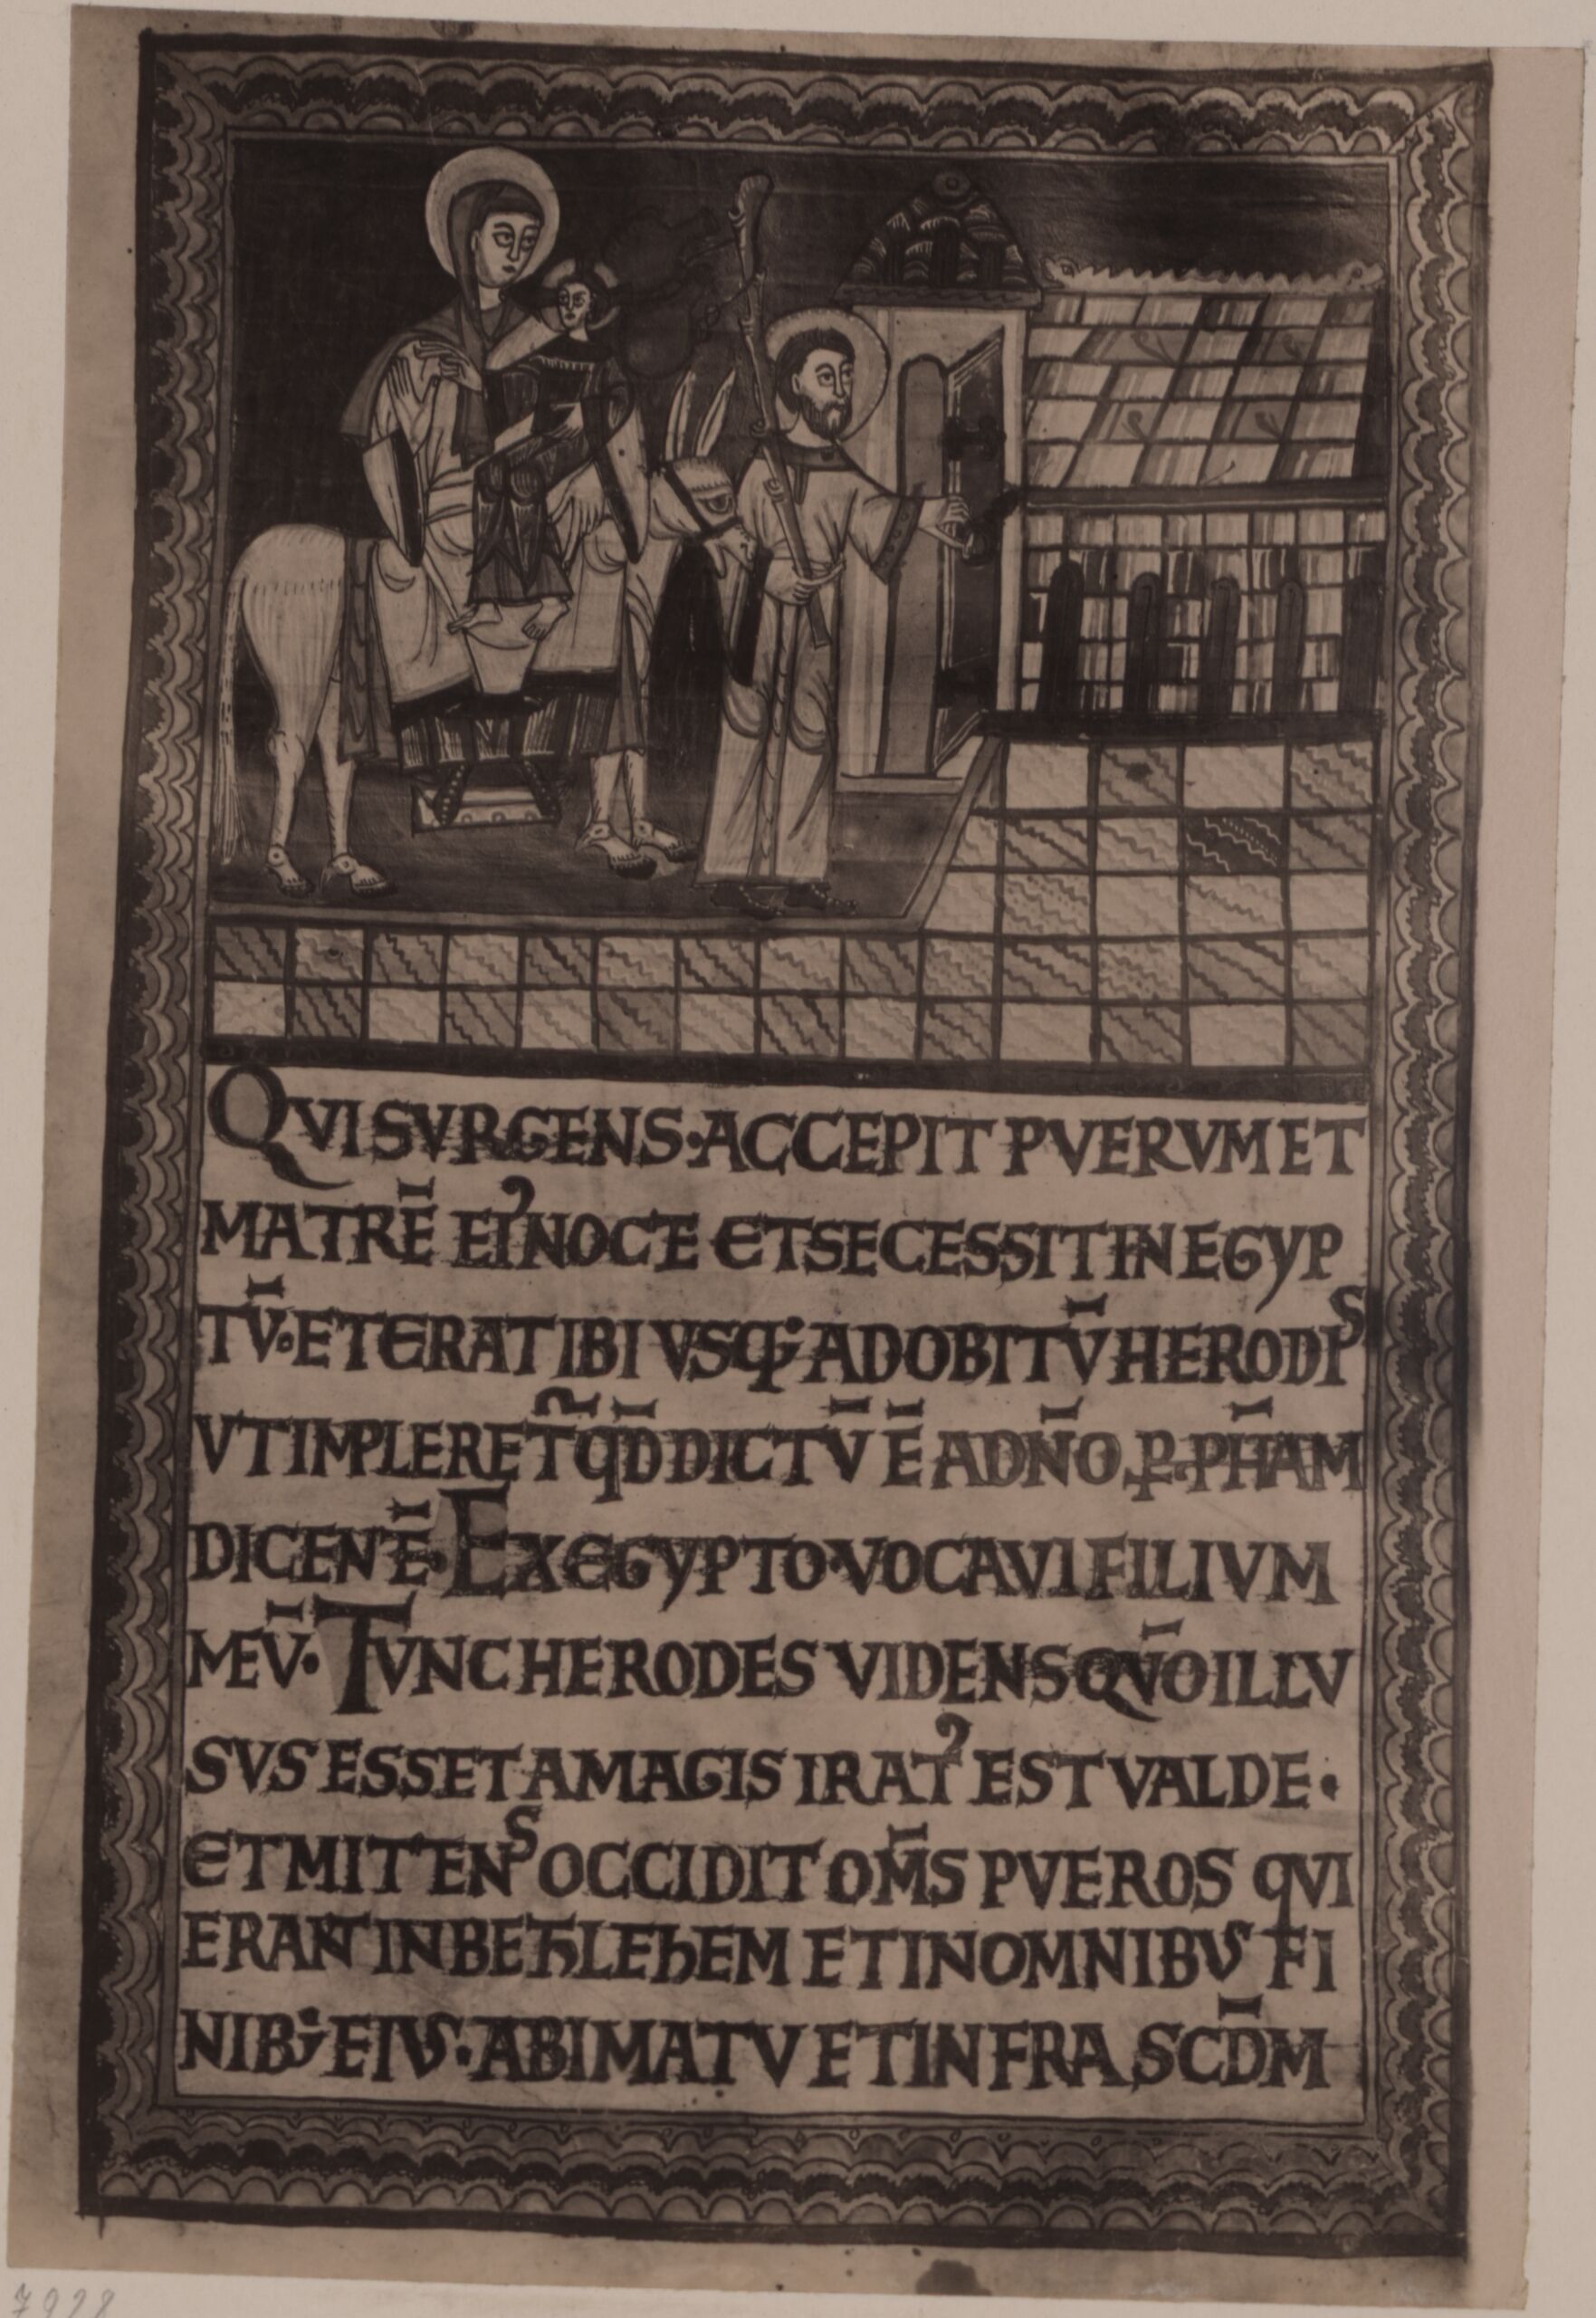 QVI SVRGENS·ACCEPIT PVERVM ET
MATRĒ EI᾿ NOCTE ET SECESSIT IN EGYP
TV̄·ET ERAT IBI VSQ; AD OBITV̄ HERODIS
VT IMPLERET᷑ QD̄ DICTV̄ Ē A DN̄O P̲ PH̄AM
DICENTĒ·EX EGYPTO·VOCAVI FILIVM
MEV̄·TVNC HERODES VIDENS QV̄O ILLV
SVS ESSET A MAGIS IRAT᾿ EST VALDE·
ET MITTENS OCCIDIT OM̄S PVEROS QVI
ERANT IN BETHLEHEM ET IN OMNIBVS FI
NIB; EIVS·A BIMATV ET INFRA SCD̄M
7928